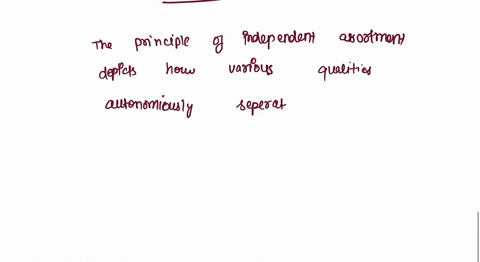 The principle of independent assortment
depicts how various qualities
autonomiously seperat